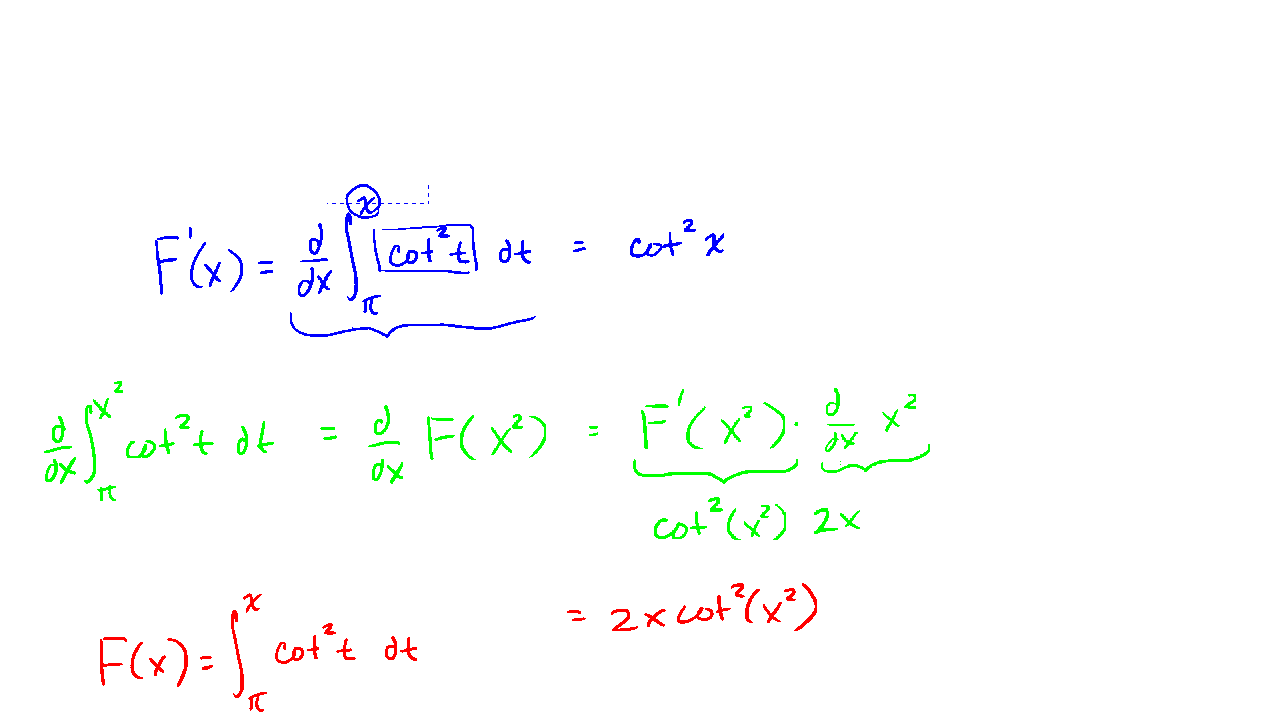 F'(x) = d/dx ∫_π^x cot² t dt = cot² x
d/dx ∫_π^{x²} cot² t dt = d/dx F(x²) = F'(x²) · d/dx x²
cot²(x²) 2x
= 2x cot²(x²)
F(x) = ∫_π^x cot² t dt